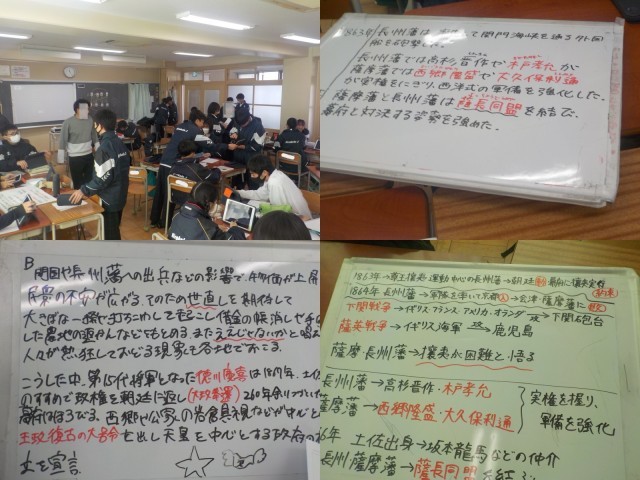 1863年長州藩は
関門海峡を通る外国
船を砲撃した。
長州藩では高杉晋作や木戸孝允が
薩摩藩では西郷隆盛や大久保利通
が実権をにぎり、西洋式の軍備を強化した。
薩摩藩と長州藩は薩長同盟を結び、
幕府と対決する姿勢を強めた。
B
開国や長州藩への出兵などの影響で、物価が上昇
民衆の不安が広がる。そのため世直しを期待して
大きな一揆や打ちこわし
した農地の返かんなどをもとめる。またええじゃないかと唱え
人々が熱狂しておどる現象も各地でおこる。
こうした中、第15代将軍となった徳川慶喜は1867年、土佐
のすすめで政権を朝廷に返し(大政奉還)260年余り
幕府はほろびる。西郷や公家の岩倉具視などが中心と
王政復古の大号令を出し天皇を中心とする政府の
を宣言
1863年→尊王攘夷運動中心の長州藩→朝廷動
1864年 長州藩→軍隊を率いて京都へ→会津・薩摩藩に敗
下関戦争→イギリス・フランス・アメリカ・オランダ→下関砲台
薩英戦争→イギリス海軍→鹿児島
薩摩・長州藩→攘夷が困難と悟る
長州藩→高杉晋作・木戸孝允
薩摩藩→西郷隆盛・大久保利通
実権を握り、
軍備を強化
6年 土佐出身→坂本龍馬などの仲介
長州 薩摩藩→薩長同盟を結ぶ